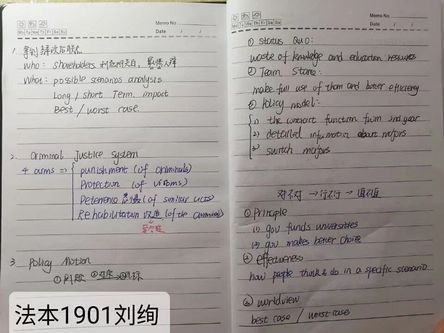 Memo No.
Date / /
Mo Tu We Th Fr Sa Su
1. 拿到辩论后
Who: Shareholders 利益相关
What: possible scenarios analysis
Long / short Term impact
Best / worst case
2. Criminal Justice System
4 aims => punishment (of criminals)
Protection (of victims)
Deterrence (of similar acts)
Rehabilitation 改造 (of the criminal)
3. Policy Motion
①
法本1901刘绚
Memo No.
Date / /
Mo Tu We Th Fr Sa Su
① Status Quo:
waste of knowledge and education resources
② Team Stance:
make full use of them and better efficiency
③ Policy model:
1) the function from 2nd year
2) detailed information about majors
3) switch majors
对不对 → 行不行 → 值不值
① Principle
1) gov funds universities
2) gov makes better choice
② effectiveness
how people think & do in a specific scenario
③ worldview
best case / worst case